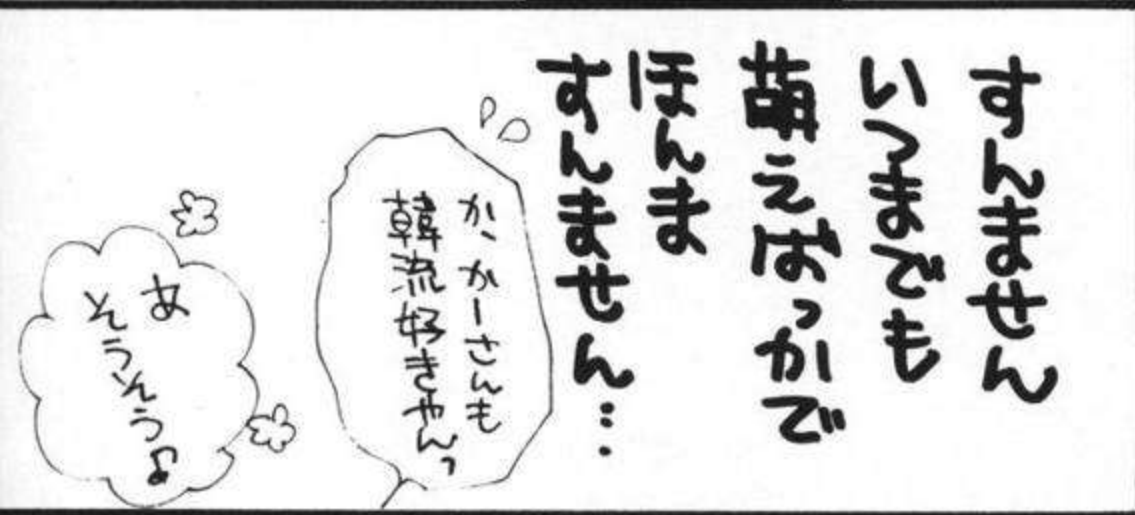 すんません
いつまでも
萌えばっかで
ほんま
すんません…
か、かーさんも
韓流好きやんっ
あ
そうそう♪